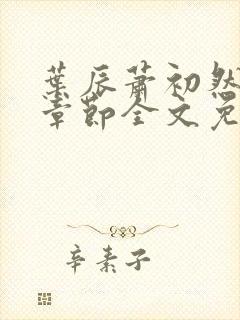 葉辰蕭初然
章節全文免
辛素子